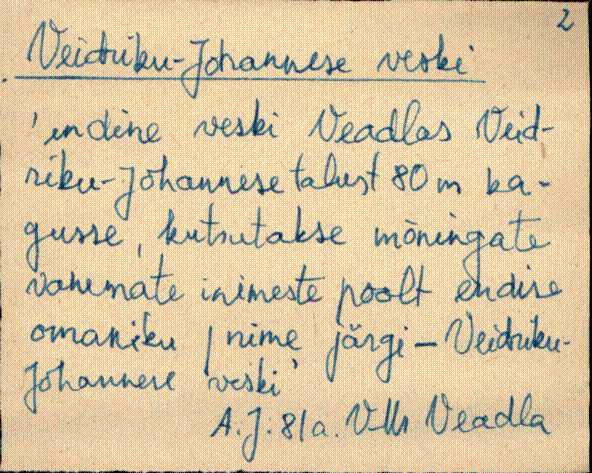 2
Veidriku-Johannese veski
'endine veski Veadlas Veid-
riku-Johannese talust 80 m ka-
gusse, kutsutakse mõningate
vanemate inimeste poolt endise
omaniku nime järgi – Veidriku-
Johannese veski'
A. J. 81a. VMr Veadla